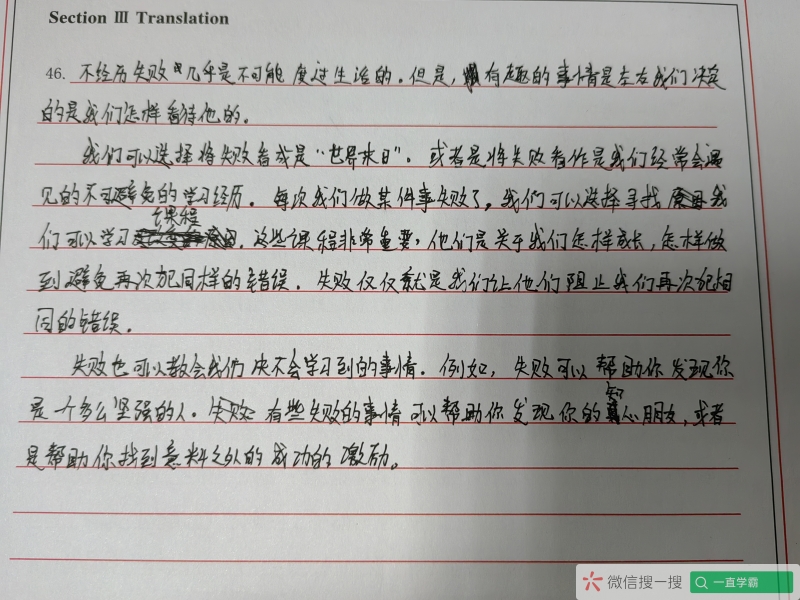 Section Ⅲ Translation
46. 不经历失败几乎是不可能度过生活的。但是,有趣的事情是左右我们决定
的是我们怎样看待他的。
我们可以选择将失败看成是“世界末日”。或者是将失败看作是我们经常会遇
见的不可避免的学习经历。每次我们做某件事失败了,我们可以选择寻找我
们可以学习课程。这些课程非常重要,他们是关于我们怎样成长,怎样做
到避免再次犯同样的错误。失败仅仅就是我们让他们阻止我们再次犯相
同的错误。
失败也可以教会我们决不会学习到的事情。例如,失败可以帮助你发现你
是一个多么坚强的人。有些失败的事情可以帮助你发现你的知心朋友,或者
是帮助你找到意料之外的成功的激励。
微信搜一搜 一直学霸